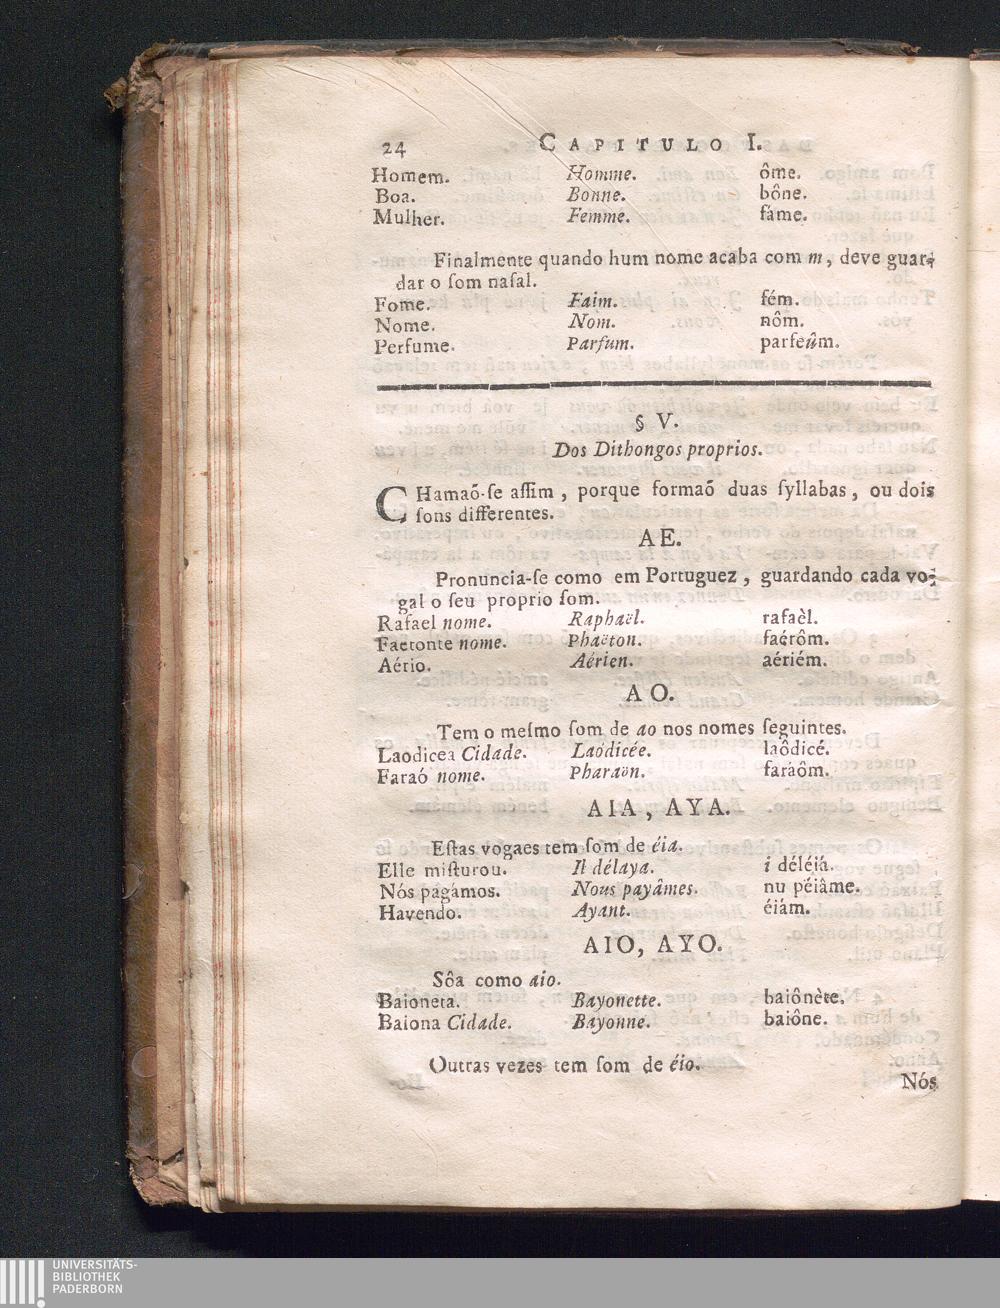 24 CAPITULO I.
Homem. Homme. ôme.
Boa. Bonne. bône.
Mulher. Femme. fáme.
Finalmente quando hum nome acaba com m, deve guar-
dar o ſom naſal.
Fome. Faim. fém.
Nome. Nom. nôm.
Perfume. Parfum. parfeûm.
§ V.
Dos Dithongos proprios.
CHamaõ-ſe aſſim, porque formaõ duas ſyllabas, ou dois
ſons differentes.
AE.
Pronuncia-ſe como em Portuguez, guardando cada vo-
gal o ſeu proprio ſom.
Rafael nome. Raphaël. rafaèl.
Faetonte nome. Phaëton. faérôm.
Aério. Aérien. aériém.
AO.
Tem o meſmo ſom de ao nos nomes ſeguintes.
Laodicea Cidade. Laodicée. laôdicé.
Faraó nome. Pharaön. faráôm.
AIA, AYA.
Eſtas vogaes tem ſom de éia.
Elle miſturou. Il délaya. i déléiá.
Nós pagámos. Nous payâmes. nu péiâme.
Havendo. Ayant. éiám.
AIO, AYO.
Sôa como aio.
Baioneta. Bayonette. baiônète.
Baiona Cidade. Bayonne. baiône.
Outras vezes tem ſom de éio.
Nós
UNIVERSITÄTS-
BIBLIOTHEK
PADERBORN